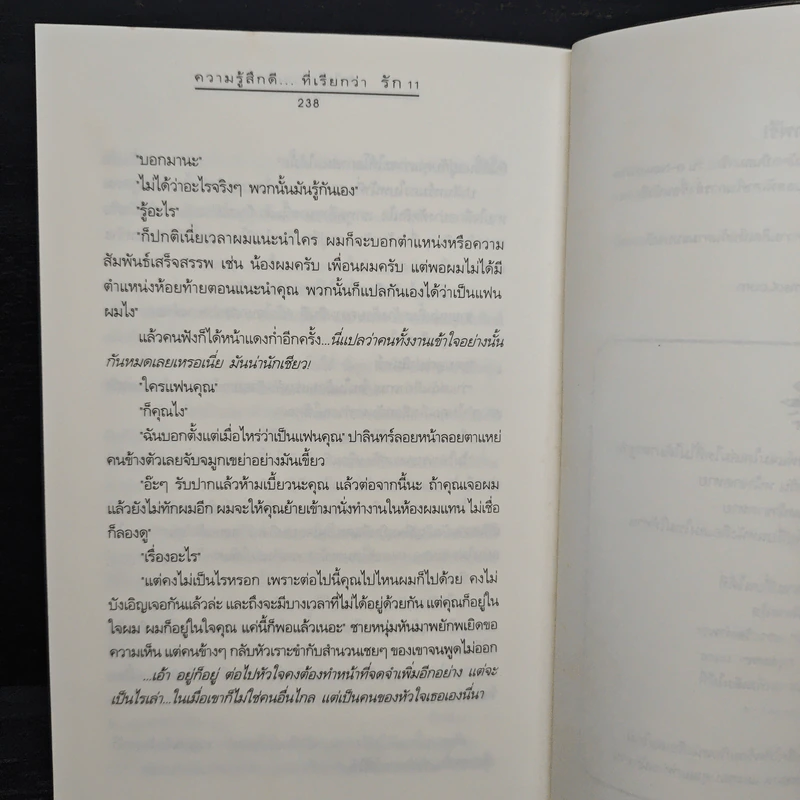 ความรู้สึกดี... ที่เรียกว่า รัก 11
238
"บอกมานะ"
"ไม่ได้ว่าอะไรจริงๆ พวกนั้นมันรู้กันเอง"
"รู้อะไร"
"ก็ปกติเนี่ยเวลาผมแนะนำใคร ผมก็จะบอกตำแหน่งหรือความ
สัมพันธ์เสร็จสรรพ เช่น น้องผมครับ เพื่อนผมครับ แต่พอผมไม่ได้มี
ตำแหน่งห้อยท้ายตอนแนะนำคุณ พวกนั้นก็แปลกันเองได้ว่าเป็นแฟน
ผมไง"
แล้วคนฟังก็ได้หน้าแดงก่ำอีกครั้ง...นี่แปลว่าคนทั้งงานเข้าใจอย่างนั้น
กันหมดเลยเหรอเนี่ย มันน่านักเชียว!
"ใครแฟนคุณ"
"ก็คุณไง"
"ฉันบอกตั้งแต่เมื่อไหร่ว่าเป็นแฟนคุณ" ปาลินทร์ลอยหน้าลอยตาแหย่
คนข้างตัวเลยจับจมูกเขย่าอย่างมันเขี้ยว
"อ๊ะๆ รับปากแล้วห้ามเบี้ยวนะคุณ แล้วต่อจากนี้นะ ถ้าคุณเจอผม
แล้วยังไม่ทักผมอีก ผมจะให้คุณย้ายเข้ามานั่งทำงานในห้องผมแทน ไม่เชื่อ
ก็ลองดู"
"เรื่องอะไร"
"แต่คงไม่เป็นไรหรอก เพราะต่อไปนี้คุณไปไหนผมก็ไปด้วย คงไม่
บังเอิญเจอกันแล้วล่ะ และถึงจะมีบางเวลาที่ไม่ได้อยู่ด้วยกัน แต่คุณก็อยู่ใน
ใจผม ผมก็อยู่ในใจคุณ แค่นี้ก็พอแล้วเนอะ" ชายหนุ่มหันมาพยักพเยิดขอ
ความเห็น แต่คนข้างๆ กลับหัวเราะขำกับสำนวนเชยๆ ของเขาจนพูดไม่ออก
...เอ้า อยู่ก็อยู่ ต่อไปหัวใจคงต้องทำหน้าที่จดจำเพิ่มอีกอย่าง แต่จะ
เป็นไรเล่า...ในเมื่อเขาก็ไม่ใช่คนอื่นไกล แต่เป็นคนของหัวใจเธอเองนี่นา